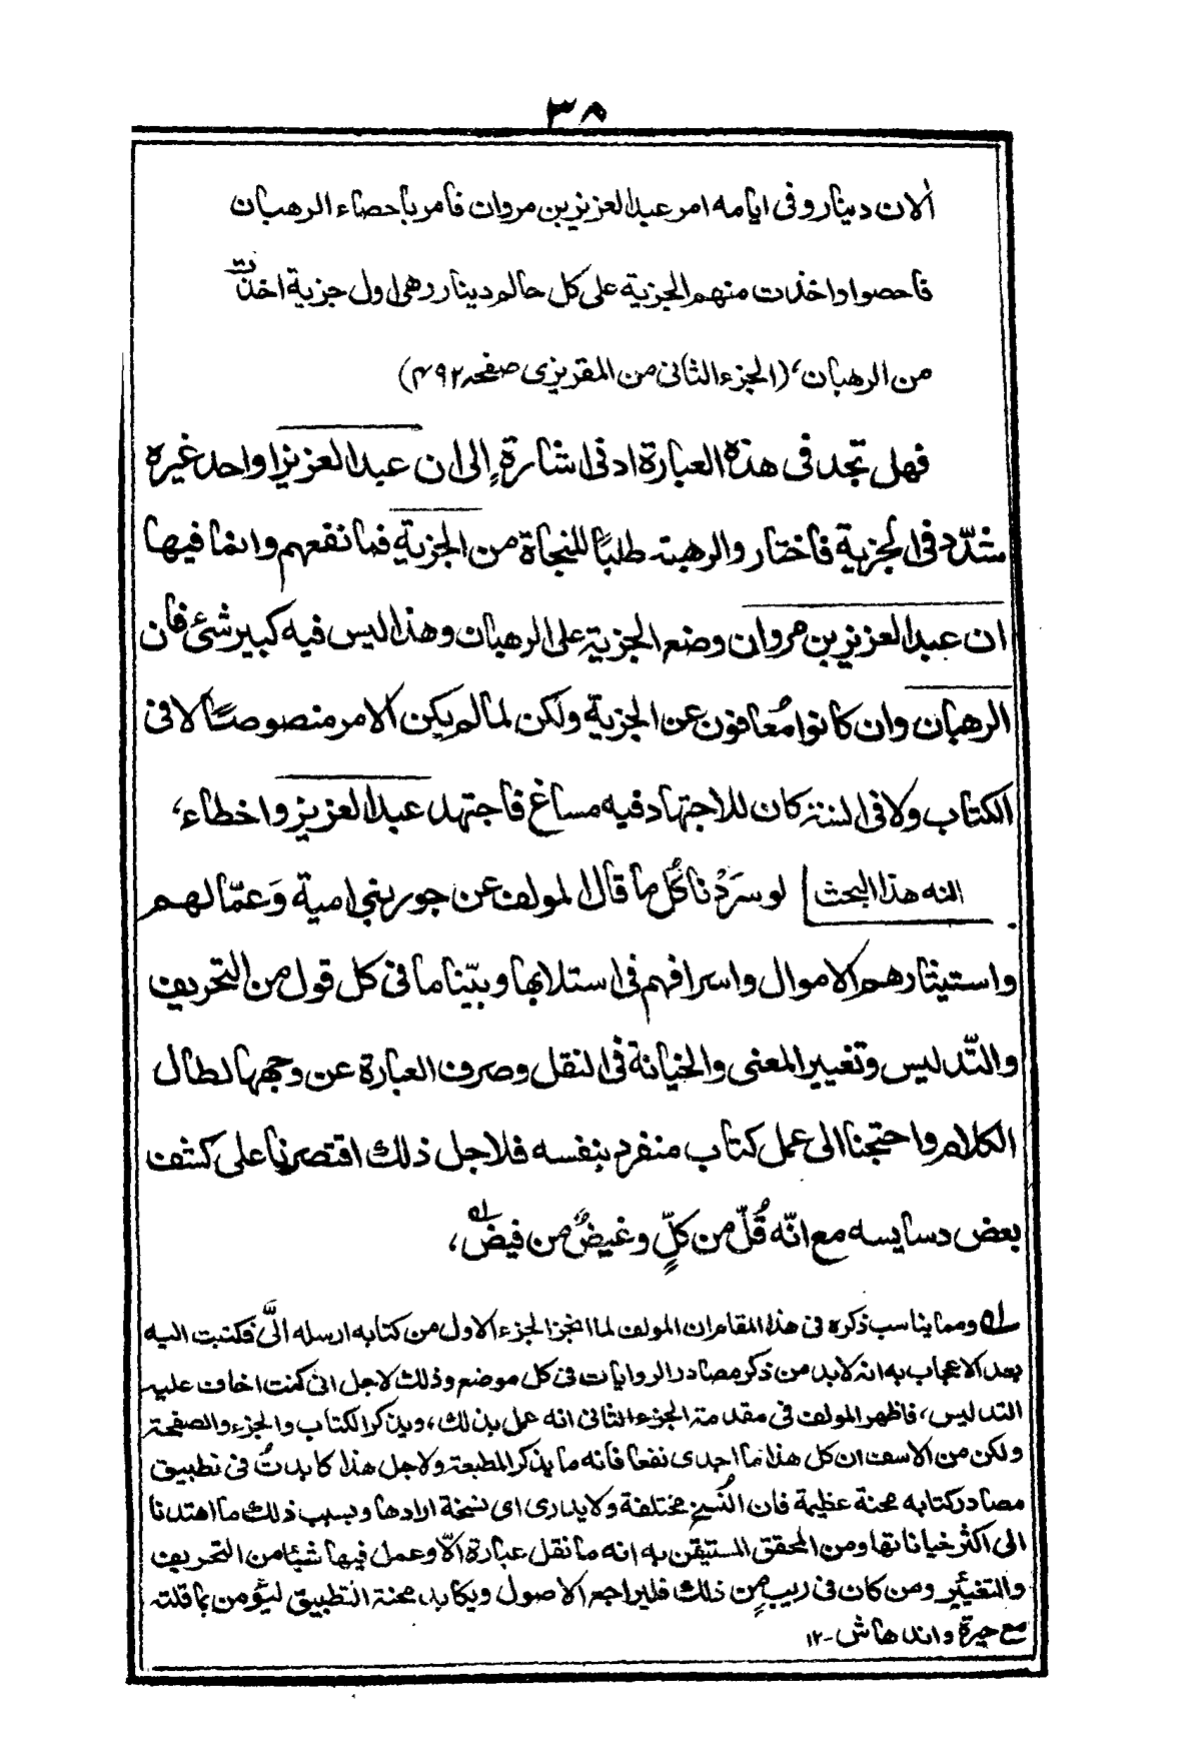 ٣٨
الان دينار وفى ايامه امر عبد العزيز بن مروان فامر باحصاء الرهبان
فاحصوا واخذت منهم الجزية على كل حالم دينار وهى اول جزية اخذت
من الرهبان، (الجزء الثانى من المقريزى صفحه ٤٩٢)
فهل تجد فى هذه العبارة ادنى اشارةٍ إلى ان عبد العزيز او احد غيره
شدّد فى الجزية فاختاروا الرهبنة طلبًا للنجاة من الجزية فما نفعهم وانما فيها
ان عبد العزيز بن مروان وضع الجزية على الرهبان وهذا ليس فيه كبير شئ فان
الرهبان وان كانوا مُعافون عن الجزية ولكن لما لم يكن الامر منصوصًا لا فى
الكتاب ولا فى السنة كان للاجتهاد فيه مساغ فاجتهد عبد العزيز واخطاء،
النه هذا البحث لو سَرَدْنا كُل ما قال المولف عن جور بني امية وَعمّالهم
واستيثارهم الاموال واسرافهم فى استلابها وبيّنا ما فى كل قول من التحريف
والتّدليس وتغيير المعنى والخيانة فى النقل وصرف العبارة عن وجهها لطال
الكلام واحتجنا الى عمل كتاب منفرد بنفسه فلاجل ذلك اقتصرنا على كشف
بعض دسايسه مع انّه قُلّ من كلٍّ وغيضٌ من فيض ل‍ه،
ل‍ه ومما يناسب ذكره فى هذا المقام ان المولف لما انجز الجزء الاول من كتابه ارسله الىَّ فكتبت اليه
بعد الاعجاب به انه لابد من ذكر مصادر الروايات فى كل موضع وذلك لاجل انى كنت اخاف عليه
التدليس، فاظهر المولف فى مقدمة الجزء الثانى انه عمل بذلك، ويذكر الكتاب والجزء والصفحة
ولكن من الاسف ان كل هذا ما اجدى نفعا فانه ما يذكر المطبعة ولاجل هذا كابدتُ فى تطبيق
مصادر كتابه محنة عظيمة فان النُسخ مختلفة ولا يدارى اى نسخة ارادها وبسبب ذلك ما اهتدنا
الى اكثر خياناتها ومن المحقق المستيقن به انه ما نقل عبارة الّا وعمل فيها شيئا من التحريف
والتغيير ومن كان فى ريب مِن ذلك فليراجع الاصول ويكابد محنة التطبيق ليؤمن بما قلته
مع حيرة واندهاش ـ ١٢